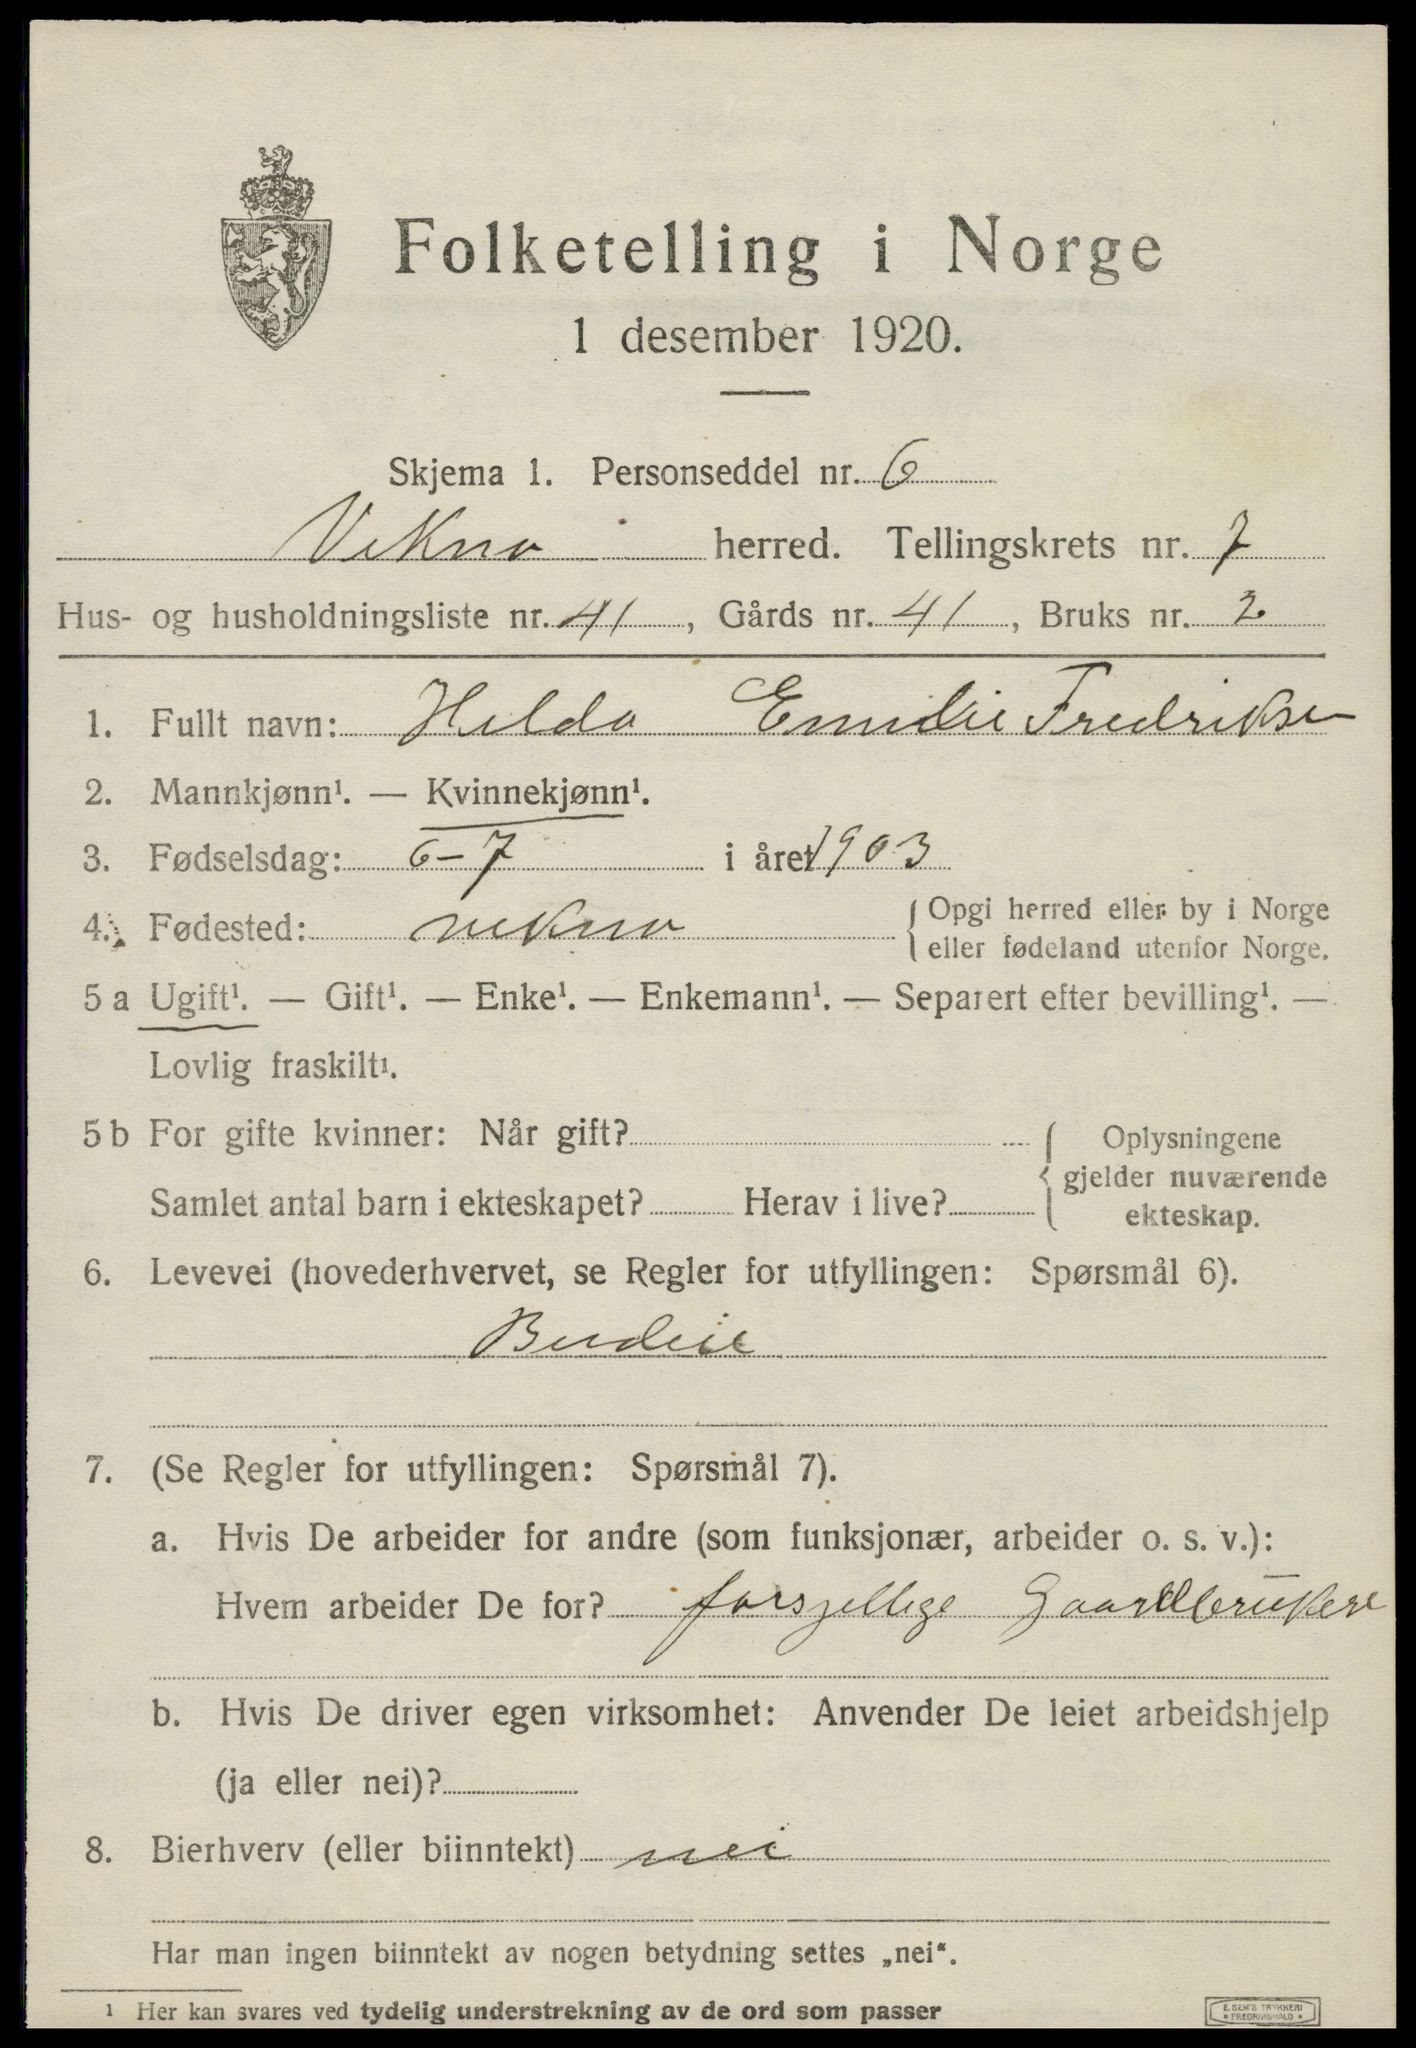 Folketelling i Norge
1 desember 1920.
Skjema 1. Personseddel nr. 6
Vikna herred. Tellingskrets nr. 7
Hus- og husholdningsliste nr. 41, Gårds nr. 41, Bruks nr. 2
1. Fullt navn: Helda Emelie Fredrikse
2. Mannkjønn¹. — Kvinnekjønn¹.
3. Fødselsdag: 6-7 i året 1903
4. Fødested: vikna { Opgi herred eller by i Norge
eller fødeland utenfor Norge.
5 a Ugift¹. — Gift¹. — Enke¹. — Enkemann¹. — Separert efter bevilling¹. —
Lovlig fraskilt¹.
5 b For gifte kvinner: Når gift? { Oplysningene
gjelder nuværende
Samlet antal barn i ekteskapet? Herav i live?
ekteskap.
6. Levevei (hovederhvervet, se Regler for utfyllingen: Spørsmål 6).
Budeie
7. (Se Regler for utfyllingen: Spørsmål 7).
a. Hvis De arbeider for andre (som funksjonær, arbeider o. s. v.):
Hvem arbeider De for? forsjellige Gaardbrukere
b. Hvis De driver egen virksomhet: Anvender De leiet arbeidshjelp
(ja eller nei)?
8. Bierhverv (eller biinntekt) nei
Har man ingen biinntekt av nogen betydning settes „nei“.
¹ Her kan svares ved tydelig understrekning av de ord som passer
E. SEM'S TRYKKERI
FREDRIKSHALD